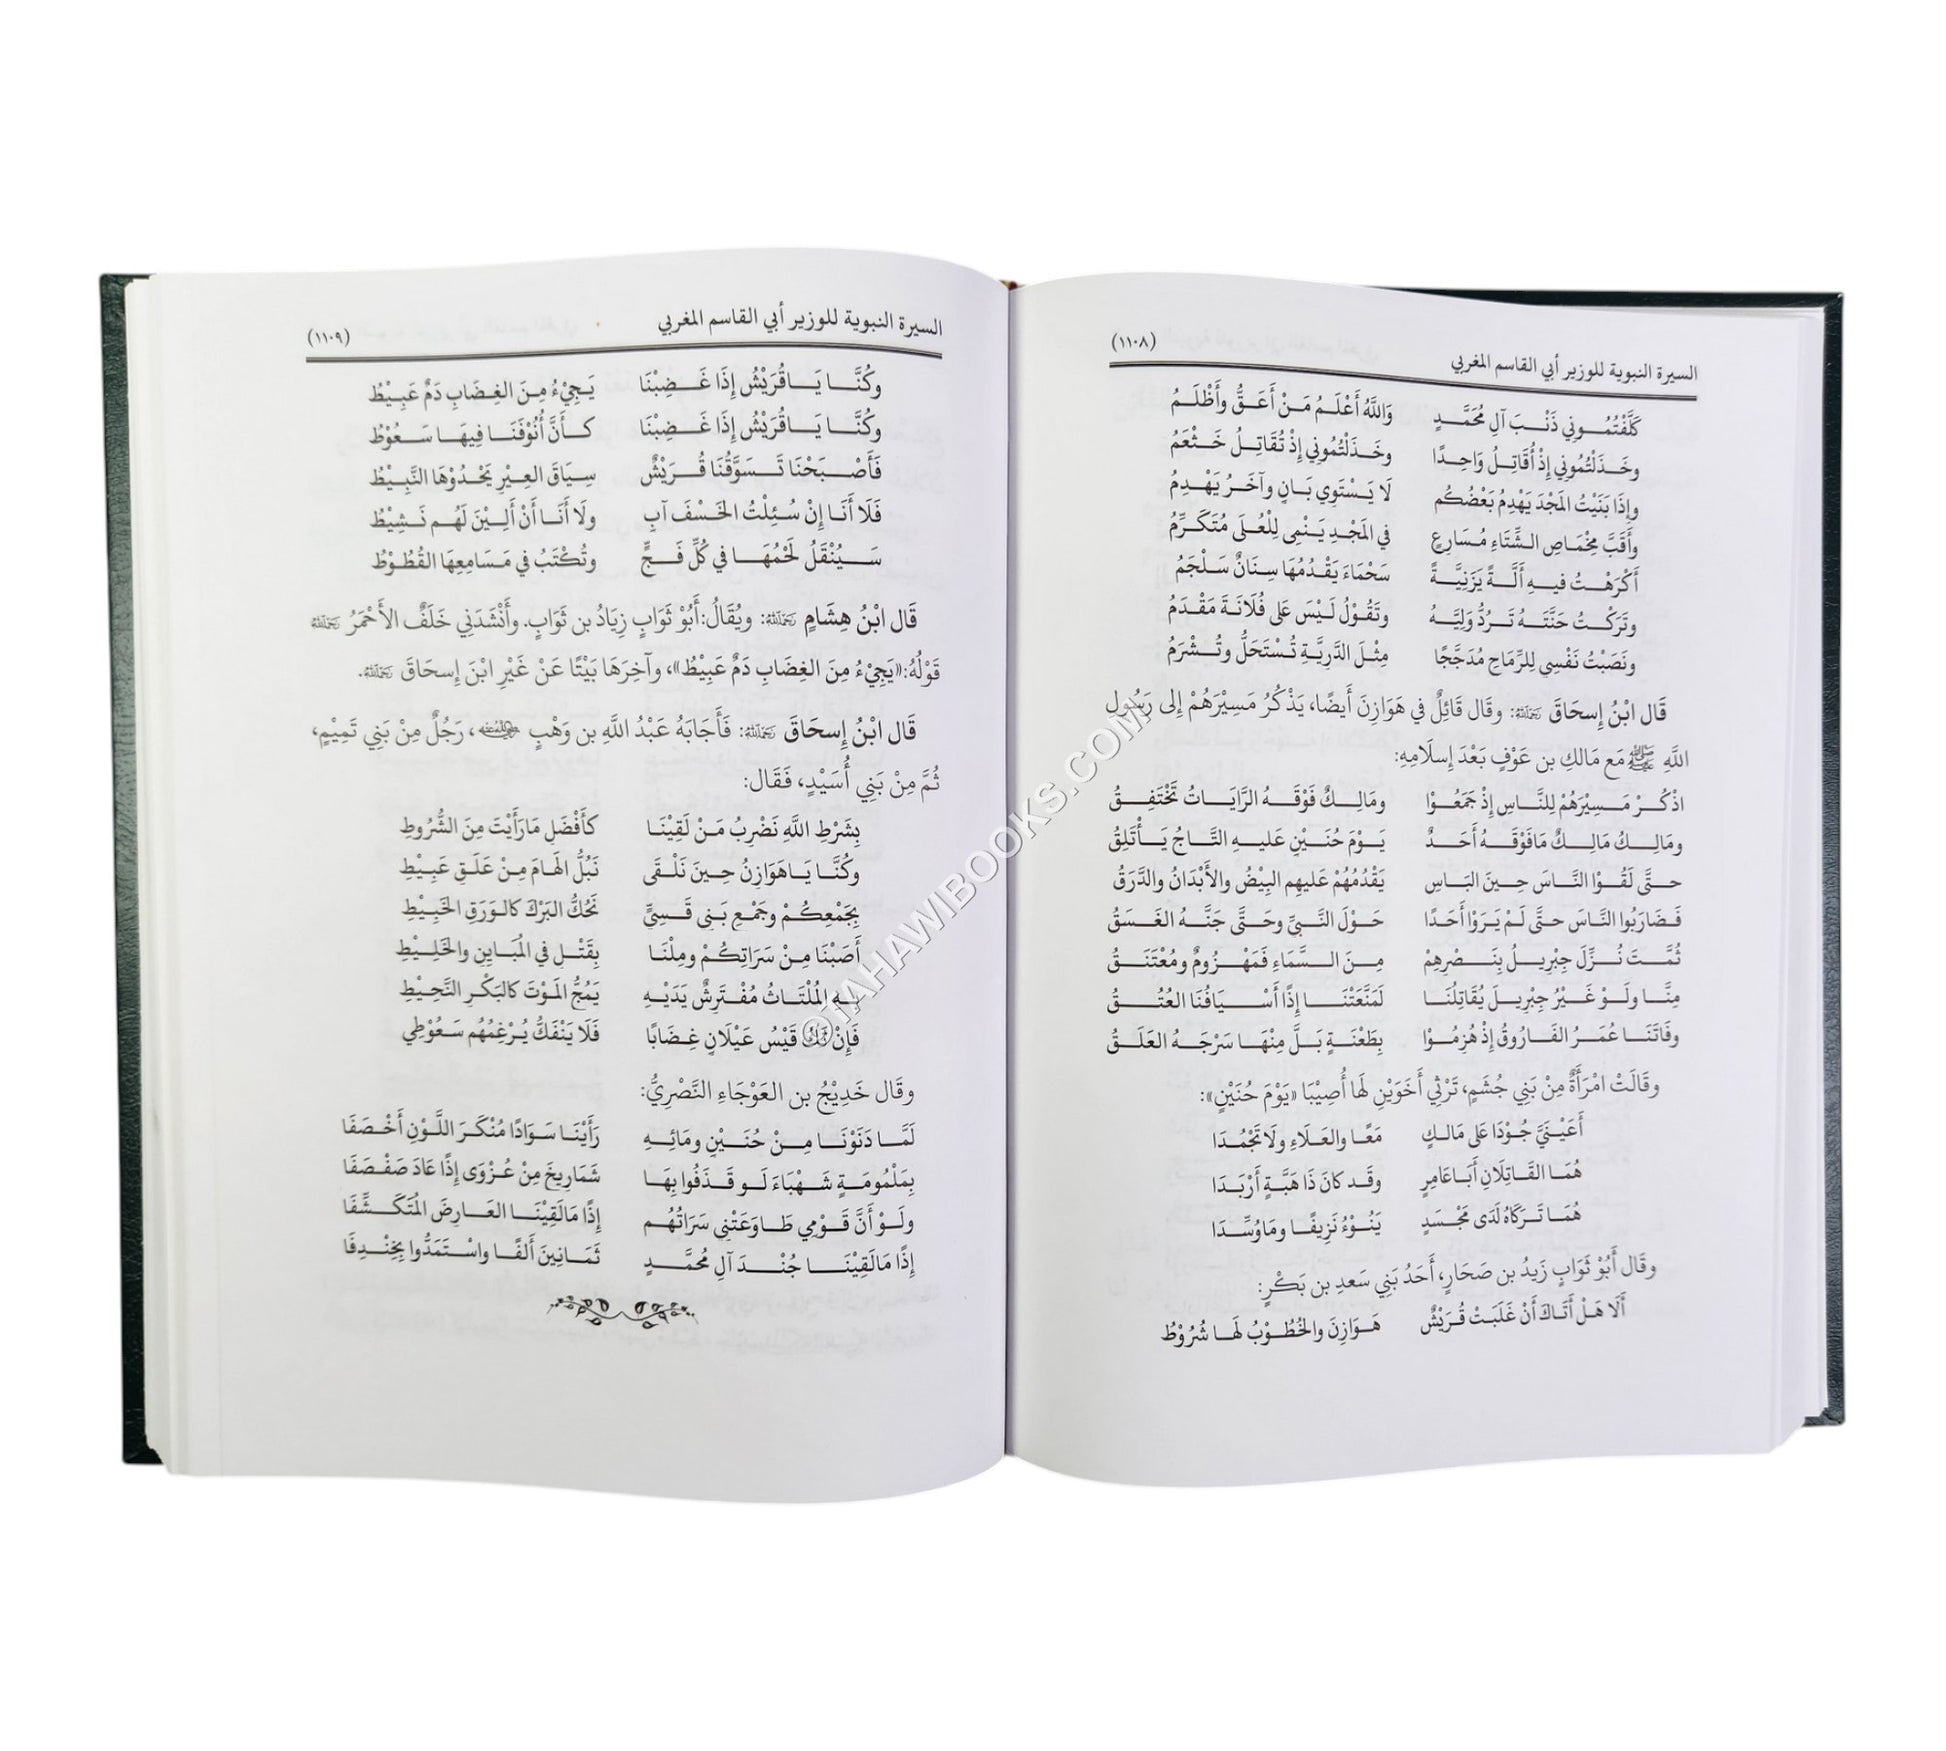 السيرة النبوية للوزير أبي القاسم المغربي (١١٠٨)
كَلَّفْتُمُوني ذَنْبَ آلِ مُحَمَّدٍ وَاللَّهُ أَعْلَمُ مَنْ أَعَقُّ وأَظْلَمُ
وخَذَلْتُمُوني إِذْ أُقَاتِلُ وَاحِدًا وخَذَلْتُمُوني إِذْ تُقَاتِلُ خَثْعَمُ
وإِذَا بَنَيْتُ المَجْدَ يَهْدِمُ بَعْضُكُم لَا يَسْتَوِي بَانٍ وآخَرُ يَهْدِمُ
وأَقَبَّ مِخْمَاصِ الشِّتَاءِ مُسَارِعٍ في المَجْدِ يَنْمِى لِلْعُلَى مُتَكَرِّمُ
أَكْرَهْتُ فيهِ أَلَّةً يَزَنِيَّةً سَحْمَاءَ يَقْدُمُهَا سِنَانٌ سَلْجَمُ
وتَرَكْتُ حَنَّتَهُ تَرُدُّ وَلِيَّهُ وتَقُوْلُ لَيْسَ عَلى فُلَانَةَ مَقْدَمُ
ونَصَبْتُ نَفْسِي لِلرِّمَاحِ مُدَجَّجًا مِثْلَ الدَّرِيَّةِ تُسْتَحَلُّ وتُشْرَمُ
قَال ابْنُ إِسحَاقَ رَحِمَهُ اللَّهُ: وقَال قَائِلٌ في هَوَازِنَ أَيضًا، يَذْكُرُ مَسِيْرَهُمْ إِلى رَسُولِ
اللَّهِ ﷺ مَع مَالكِ بن عَوْفٍ بَعْدَ إِسلَامِهِ:
اذْكُرْ مَسِيْرَهُمْ لِلنَّاسِ إِذْ جَمَعُوْا ومَالِكٌ فَوْقَهُ الرَّايَاتُ تَخْتَفِقُ
ومَالِكُ مَالِكٌ مَافَوْقَهُ أَحَدٌ يَوْمَ حُنَيْنِ عَليهِ التَّاجُ يَأْتَلِقُ
حتَّى لَقُوْا النَّاسَ حِينَ البَاسِ يَقْدُمُهُمْ عَليهِم البِيْضُ والأَبْدَانُ والدَّرَقُ
فَضَارَبُوا النَّاسَ حتَّى لَمْ يَرَوْا أَحَدًا حَوْلَ النَّبيِّ وحَتَّى جَنَّهُ الغَسَقُ
ثُمَّتَ نُزِّلَ جِبْرِيلُ بِنَصْرِهِمْ مِنَ السَّمَاءِ فَمَهْزُومٌ ومُعْتَنَقُ
مِنَّا ولَوْ غَيْرُ جِبْرِيلَ يُقَاتِلُنَا لَمَنَّعَتْنَا إِذًا أَسْيَافُنَا العُتُقُ
وفَاتَنَا عُمَرُ الفَارُوقُ إِذْ هُزِمُوْا بِطَعْنَةٍ بَلَّ مِنْهَا سَرْجَهُ العَلَقُ
وقَالَتْ امْرَأَةٌ مِنْ بَنِي جُشَمٍ، تَرْثِي أَخَوَيْنِ لهَا أُصِيْبَا «يَوْمَ حُنَيْنٍ»:
أَعَيْنَيَّ جُوْدَا عَلى مَالكٍ مَعًا والعَلَاءِ ولَا تَجْمُدَا
هُمَا القَاتِلَانِ أَبَا عَامِرٍ وقَد كانَ ذَا هَبَّةٍ أَرْبَدَا
هُمَا تَرَكَاهُ لَدَى مَجْسَدٍ يَنُوْءُ نَزِيفًا ومَاوُسِّدَا
وقَال أَبُوْ ثَوَابٍ زَيدُ بن صَحَارٍ، أَحَدُ بَنِي سَعدِ بن بَكْرٍ:
أَلَا هَلْ أَتَاكَ أَنْ غَلَبَتْ قُرَيْشٌ هَوَازِنَ والخُطُوْبُ لهَا شُرُوْطُ
السيرة النبوية للوزير أبي القاسم المغربي (١١٠٩)
وكُنَّا يَاقُرَيْشُ إِذَا غَضِبْنَا يَجِيْءُ مِنَ الغِضَابِ دَمٌ عَبِيْطُ
وكُنَّا يَاقُرَيْشُ إِذَا غَضِبْنَا كَأَنَّ أُنُوْفَنَا فِيهَا سَعُوْطُ
فَأَصْبَحْنَا تَسَوَّقُنَا قُرَيْشٌ سِيَاقَ العِيْرِ يَحْدُوْهَا النَّبِيْطُ
فَلَا أَنَا إِنْ سُئِلْتُ الخَسْفَ آبٍ ولَا أَنَا أَنْ أَلِيْنَ لَهُم نَشِيْطُ
سَيُنْقَلُ لَحْمُهَا في كُلِّ فَجٍّ وتُكْتَبُ في مَسَامِعِهَا القُطُوْطُ
قَال ابْنُ هِشَامٍ رَحِمَهُ اللَّهُ: ويُقَالُ: أَبُوْ ثَوَابٍ زِيَادُ بن ثَوَابٍ. وأَنْشَدَنِي خَلَفٌ الأَحْمَرُ رَحِمَهُ اللَّهُ
قَوْلُهُ: «يَجِيْءُ مِنَ الغِضَابِ دَمٌ عَبِيْطُ»، وآخِرَهَا بَيْتًا عَنْ غَيْرِ ابْنَ إِسحَاقَ رَحِمَهُ اللَّهُ.
قَال ابْنُ إِسحَاقَ رَحِمَهُ اللَّهُ: فَأَجَابَهُ عَبْدُ اللَّهِ بن وَهْبٍ رَضِيَ اللَّهُ عَنْهُ، رَجُلٌ مِنْ بَنِي تَمِيْمٍ،
ثُمَّ مِنْ بَنِي أُسَيْدٍ، فَقَال:
بِشَرْطِ اللَّهِ نَضْرِبُ مَنْ لَقِيْنَا كأَفْضَلِ مَارَأَيْتَ مِنَ الشُّرُوطِ
وكُنَّا يَاهَوَازِنُ حِينَ نَلْقَى نَبُلُّ الهَامَ مِنْ عَلَقٍ عَبِيْطِ
بِجَمْعِكُمْ وجَمْعِ بَنِي قَسِيٍّ نَحُكُّ البَرْكَ كالوَرَقِ الخَبِيْطِ
أَصَبْنَا مِنْ سَرَاتِكُمْ ومِلْنَا بِقَتْلٍ في المُبَايِنِ والخَلِيْطِ
بِهِ المُلْتَاثُ مُفْتَرِشٌ يَدَيْهِ يَمُجُّ المَوْتَ كالبَكْرِ النَّحِيْطِ
فَإِنْ تَكُ قَيْسُ عَيْلَانٍ غِضَابًا فَلَا يَنْفَكُّ يُرْغِمُهُم سَعُوْطِي
وقَال خَدِيْجُ بن العَوْجَاءِ النَّصْرِيُّ:
لَمَّا دَنَوْنَا مِنْ حُنَيْنٍ ومَائِهِ رَأَيْنَا سَوَادًا مُنْكَرَ اللَّوْنِ أَخْصَفَا
بِمَلْمُومَةٍ شَهْبَاءَ لَو قَذَفُوا بِهَا شَمَارِيخَ مِنْ عُزْوَى إِذًا عَادَ صَفْصَفَا
ولَوْ أَنَّ قَوْمِي طَاوَعَتْنِي سَرَاتُهُم إِذًا مَالَقِيْنَا العَارِضَ المُتَكَشِّفَا
إِذًا مَالَقِيْنَا جُنْدَ آلِ مُحَمَّدٍ ثَمَانِينَ أَلفًا واسْتَمَدُّوا بِخِنْدِفَا
©TAHAWIBOOKS.COM